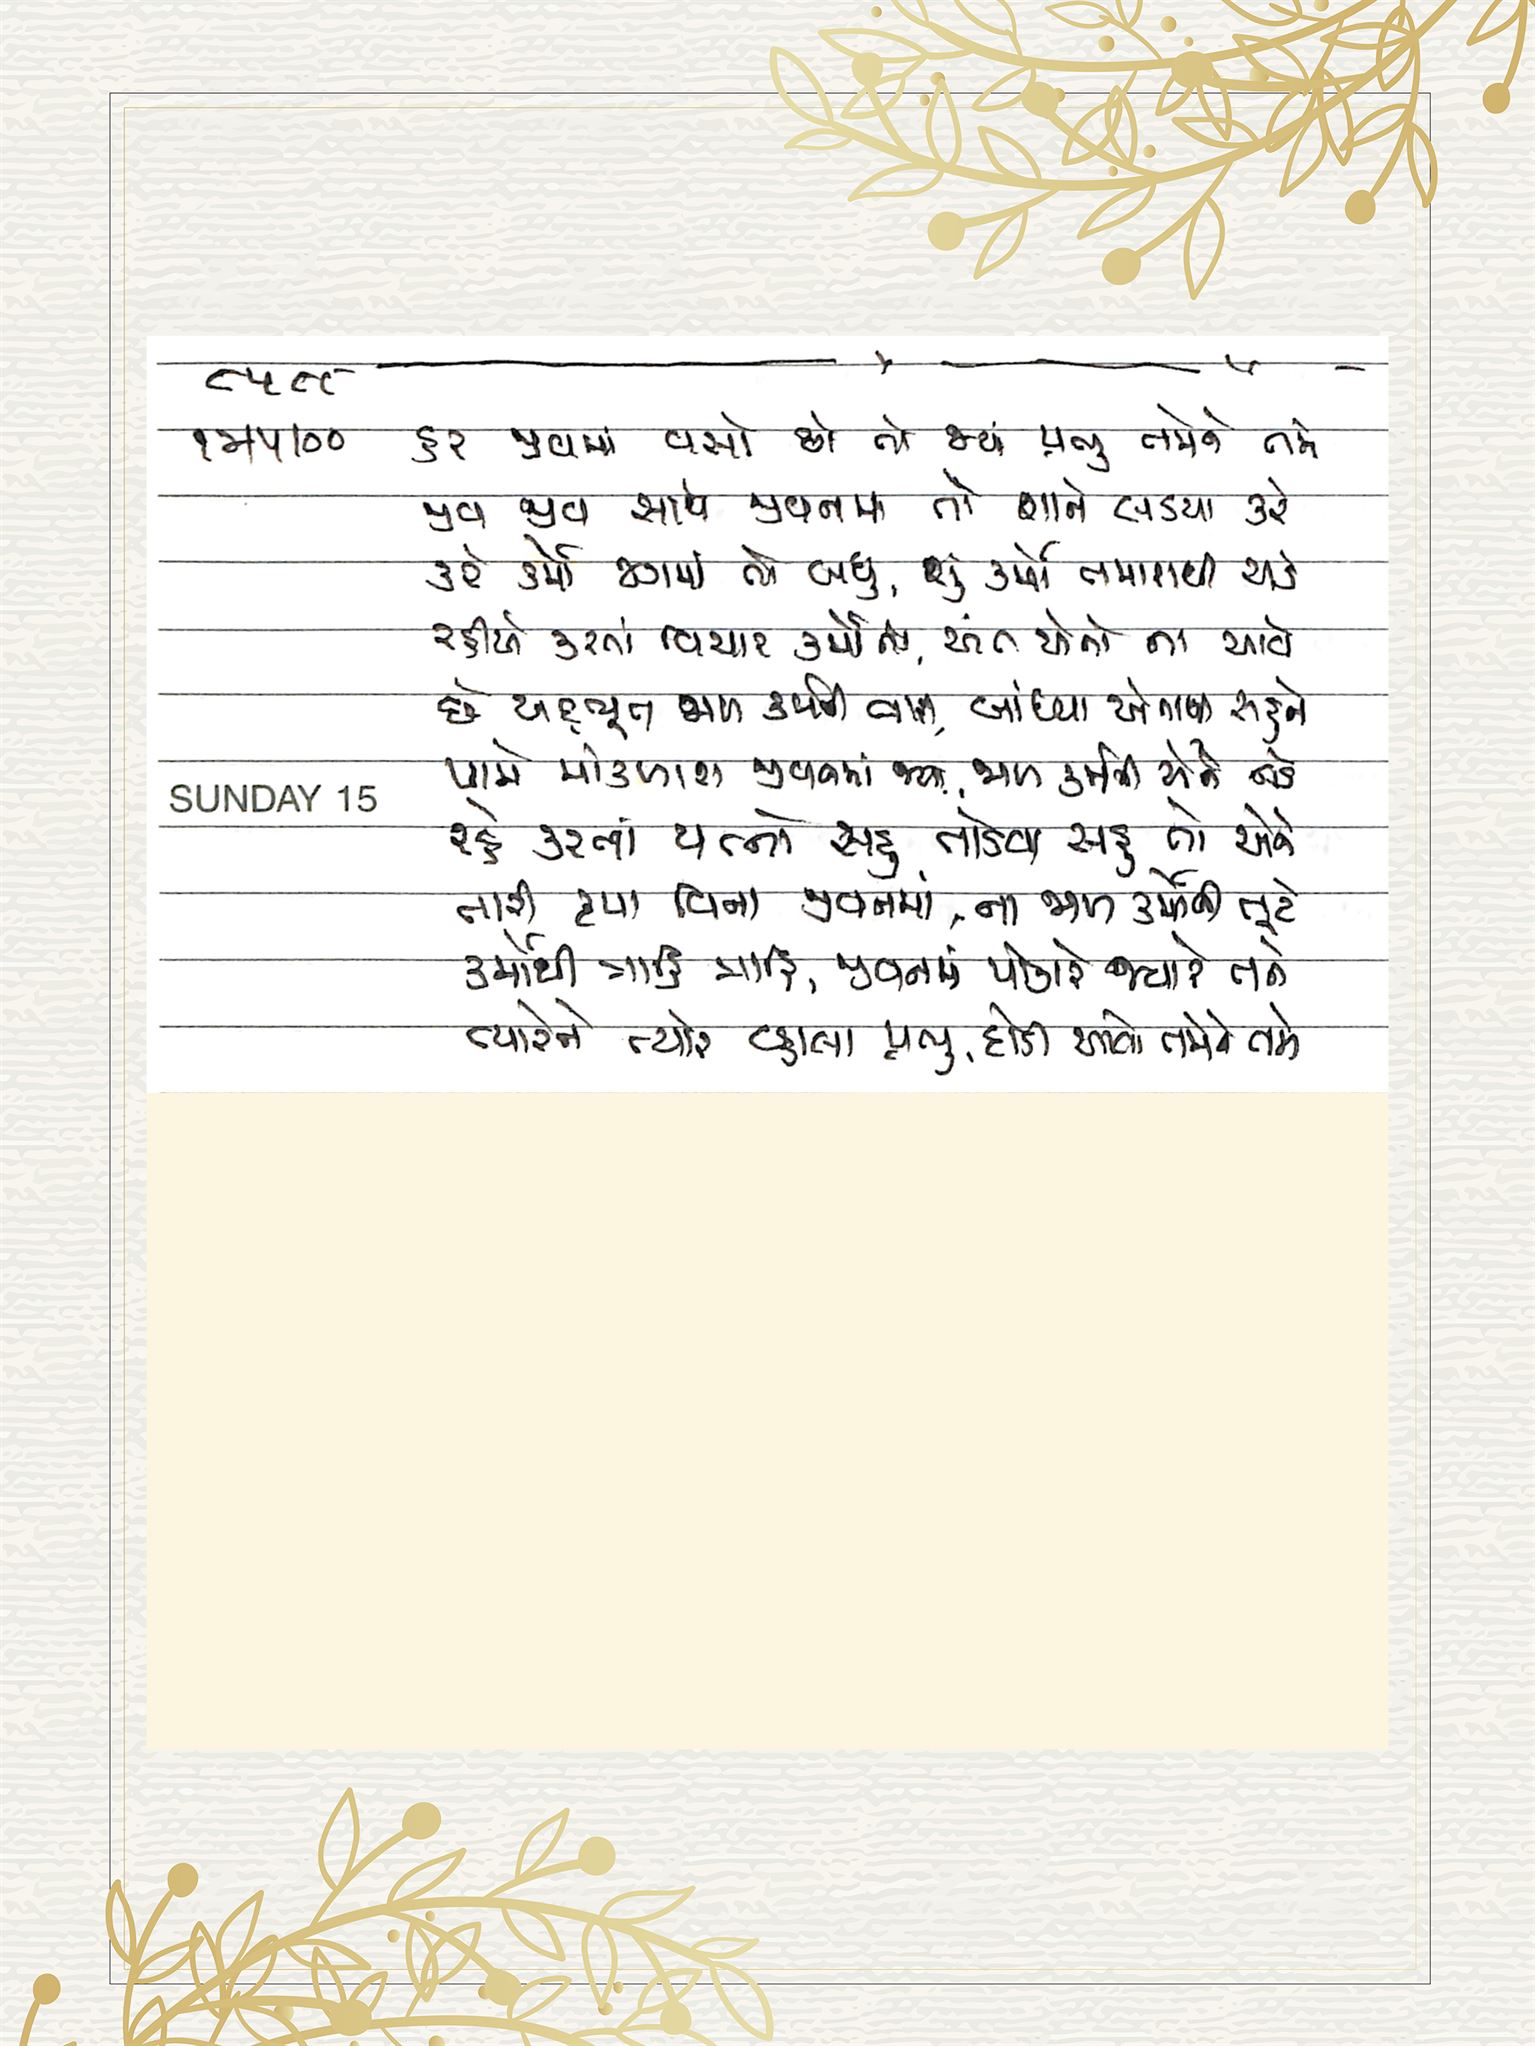 ૯૫૯૯
હર જીવમાં વસો છો તો જ્યાં પ્રભુ તમેને તમે
જીવ જીવ સાથે જીવનમાં તો શાને લડયા કરે
કરે કર્મો જગમાં તો બધુ, શું કર્મો તમારાથી ચડે
રહીએ કરતાં વિચાર કર્મોના, અંત એનો ના આવે
છે અદ્ભૂત જાળ કર્મની, બાંધ્યા એનાથી સહુને
પામે મોકળાશ જીવનમાં જ્યાં, જાળ કર્મની એને નડે
રહે કરતાં યત્નો સહુ તોડવા સહુ તો એને
તારી કૃપા વિના જીવનમાં, ના જાળ કર્મોની તૂટે
કર્મોથી ત્રાહિ ત્રાહિ, જીવનમાં પોકારે જ્યારે તને
ત્યારેને ત્યારે વ્હાલા પ્રભુ, દોડી આવો તમેને તમે
SUNDAY 15